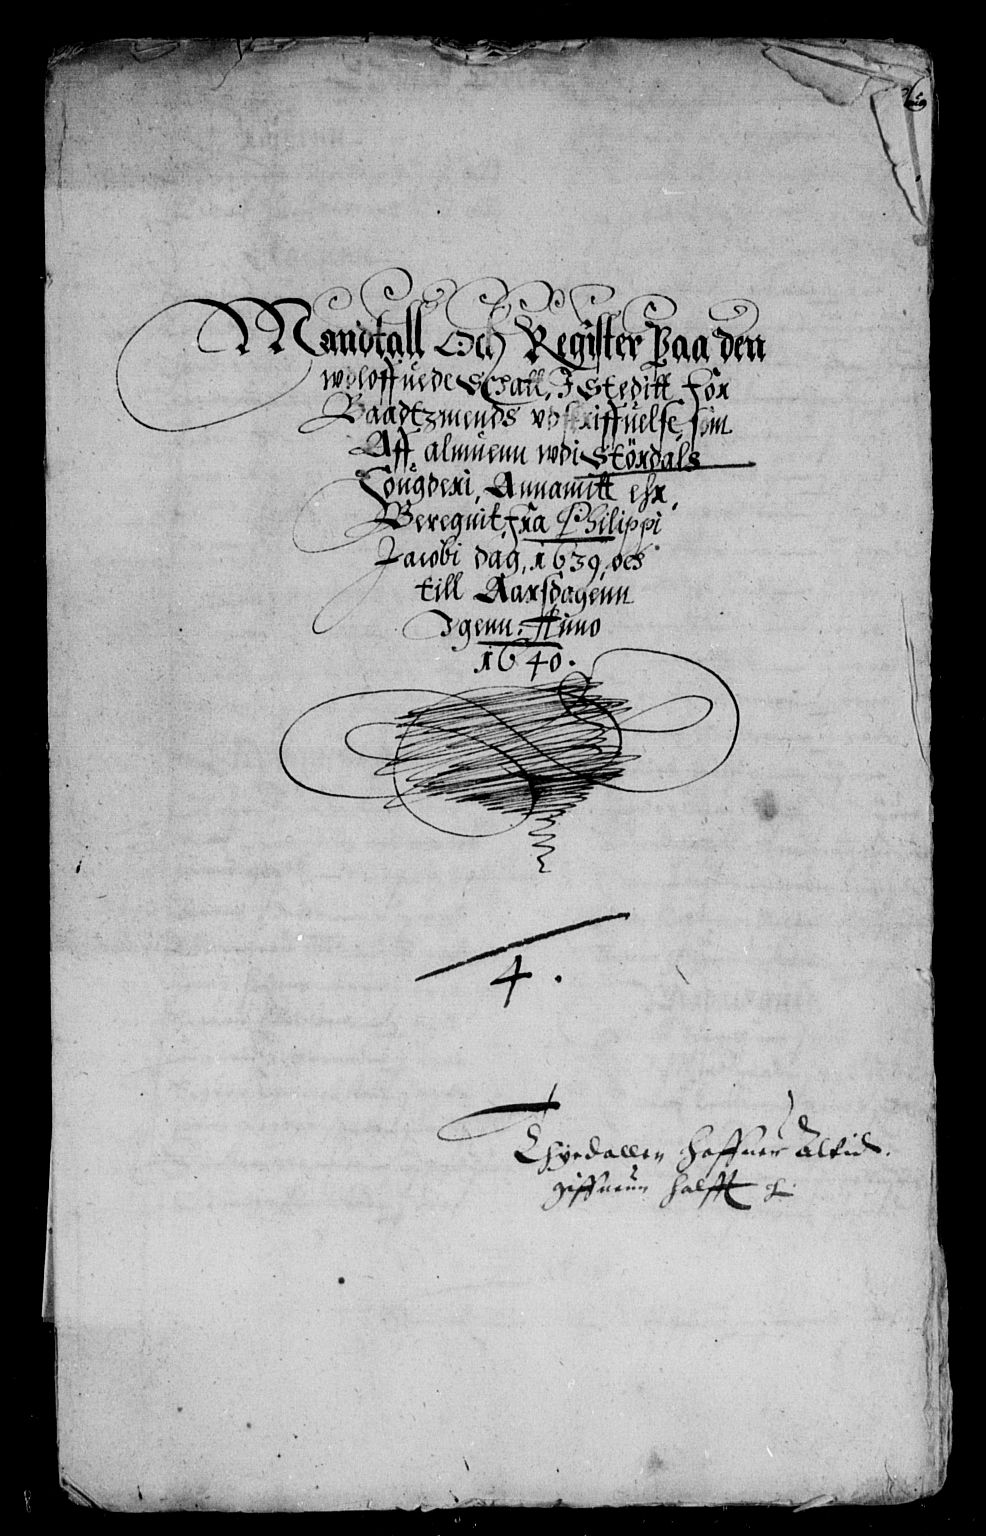 Mandtall Och Register Paa den
wdloffuede Schatt, I Steditt for
Baadtzmends vdskriffuelse, som
Aff almuenn wdi Stördals
Fougderi, Annamitt ehr,
Beregnit, fra Philippi
Jacobi dag, 1639, oc
till Aarsdagenn
Igenn. Anno
1640.
4.
Thyedallen haffuer altid
giffuenn halfft